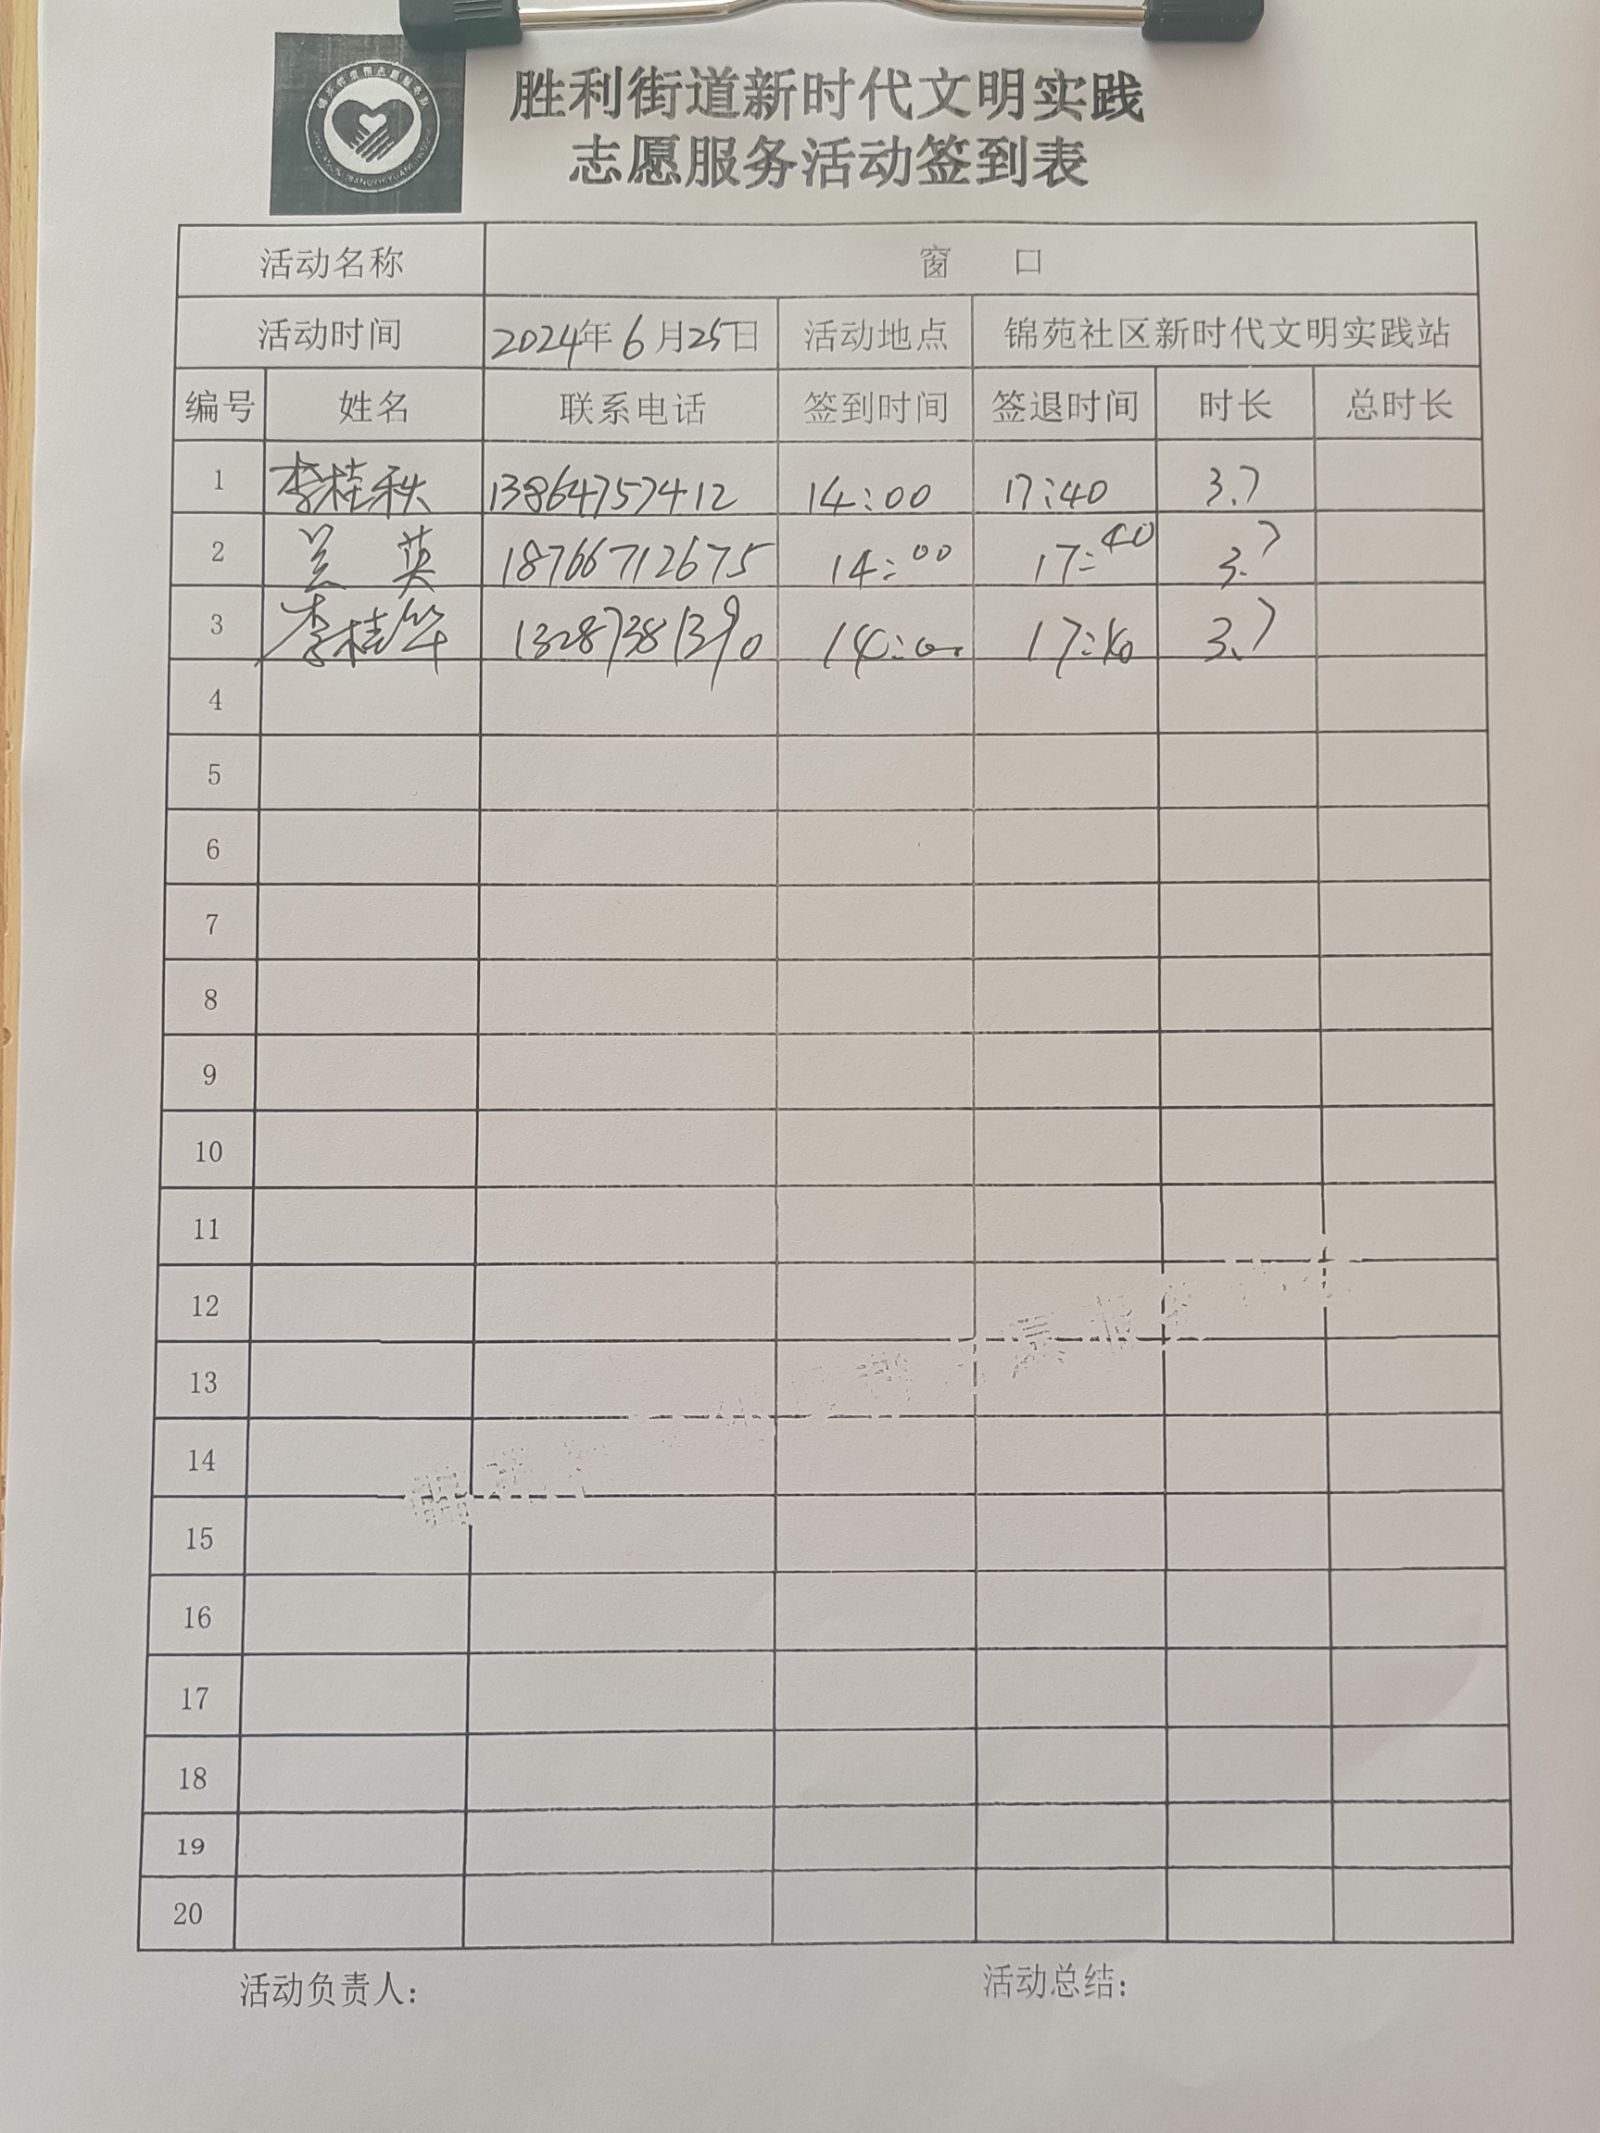 胜利街道新时代文明实践
志愿服务活动签到表
活动名称 窗 口
活动时间 2024年6月25日 活动地点 锦苑社区新时代文明实践站
编号 姓名 联系电话 签到时间 签退时间 时长 总时长
1 李桂秋 13864757412 14:00 17:40 3.7
2 兰 英 18766712675 14:00 17:40 3.7
3 李桂华 13287381390 14:00 17:40 3.7
4
5
6
7
8
9
10
11
12
13
14
15
16
17
18
19
20
活动负责人: 活动总结: